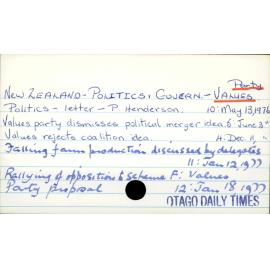 Party
NEW ZEALAND - POLITICS & GOVERN. - VALUES
Politics - letter - P. Henderson. 10: May 13, 1976
Values party dismisses political merger idea. 6: June 3 "
Values rejects coalition idea. 4: Dec. 1, "
Falling farm production discussed by delegates
11: Jan 12, 1977
Rallying of opposition to scheme F: Values
Party proposal 12: Jan 18 1977
OTAGO DAILY TIMES